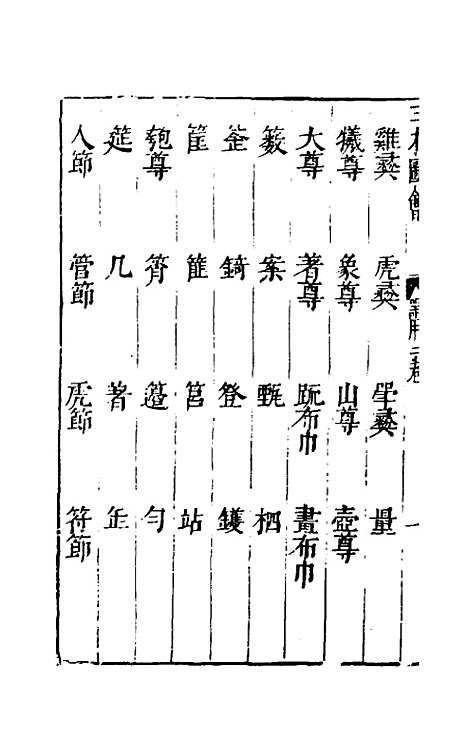 三才圖會 器用二卷 一
雞彝 虎彝 斝彝 量
犧尊 象尊 山尊 壺尊
大尊 著尊 疏布巾 畫布巾
簌 案 甒 柶
釜 錡 登 鑊
筐 筥 坫
匏尊 筲 籩 勺
筵 几 著
人節 管節 虎節 符節